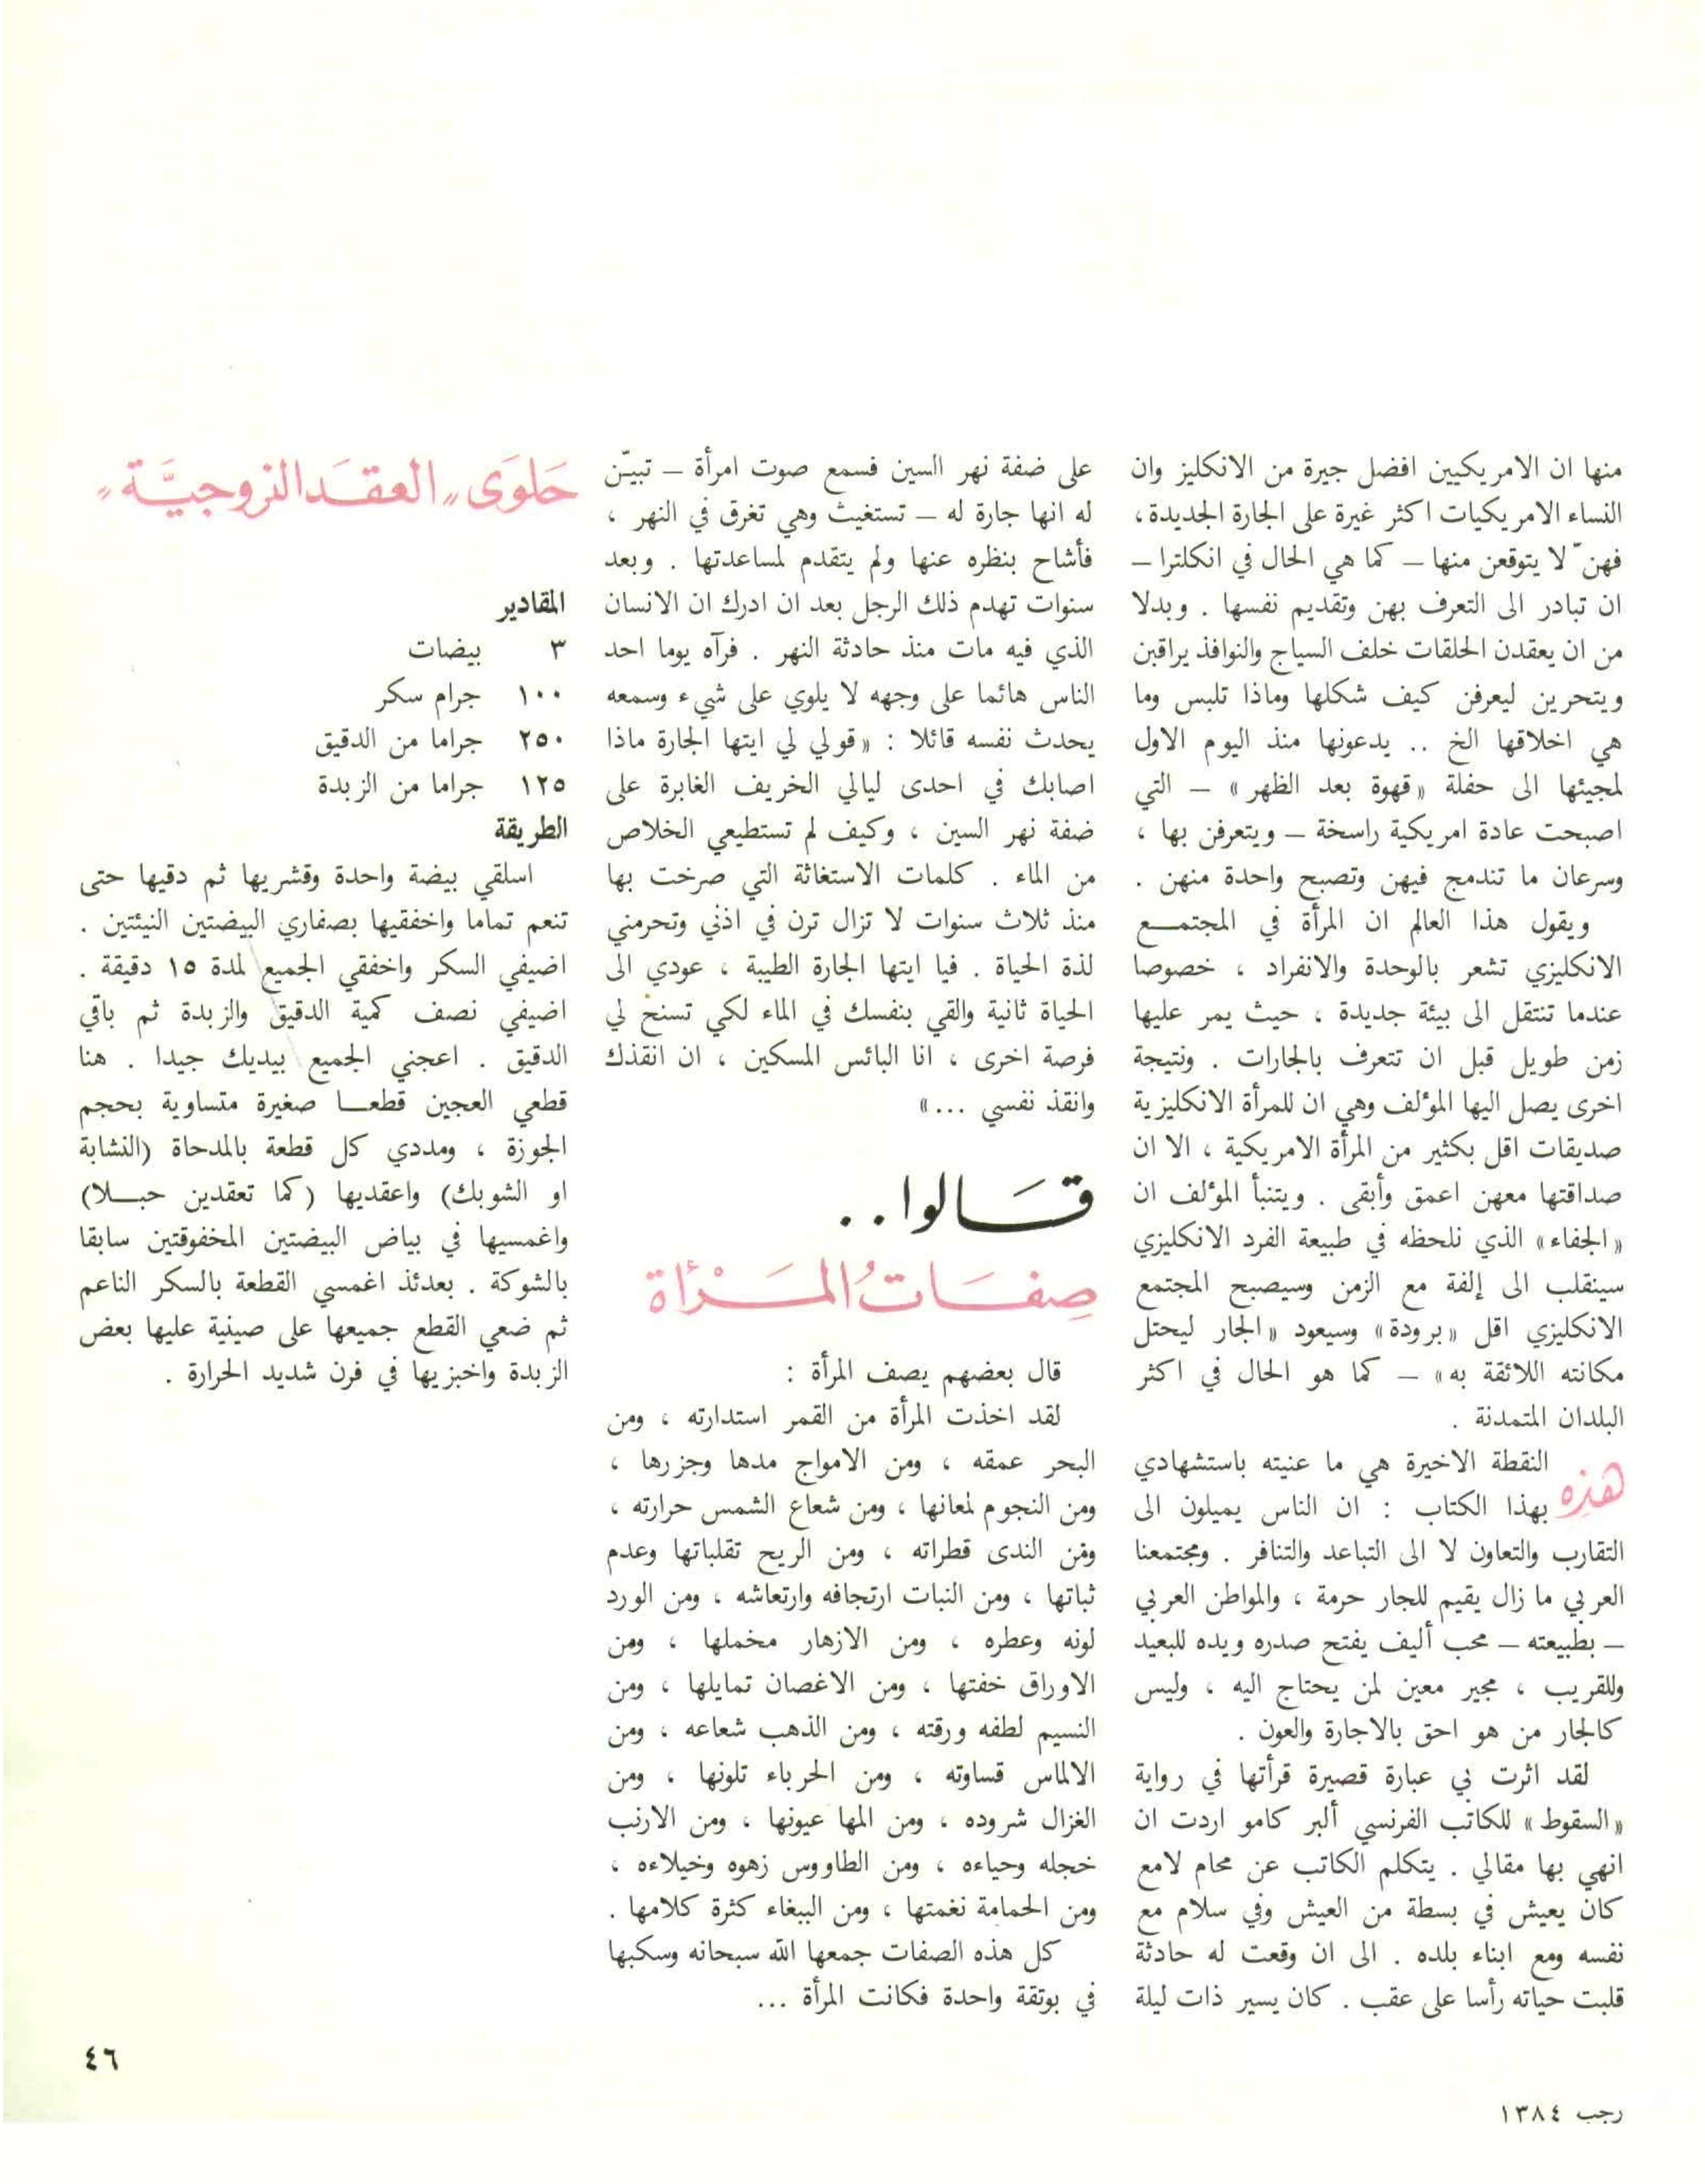 منها ان الامريكيين افضل جيرة من الانكليز وان
النساء الامريكيات اكثر غيرة على الجارة الجديدة،
فهنّ لا يتوقعن منها — كما هي الحال في انكلترا —
ان تبادر الى التعرف بهن وتقديم نفسها . وبدلا
من ان يعقدن الحلقات خلف السياج والنوافذ يراقبن
ويتحرين ليعرفن كيف شكلها وماذا تلبس وما
هي اخلاقها الخ .. يدعونها منذ اليوم الاول
لمجيئها الى حفلة «قهوة بعد الظهر» — التي
اصبحت عادة امريكية راسخة — ويتعرفن بها ،
وسرعان ما تندمج فيهن وتصبح واحدة منهن .
ويقول هذا العالم ان المرأة في المجتمع
الانكليزي تشعر بالوحدة والانفراد ، خصوصا
عندما تنتقل الى بيئة جديدة ، حيث يمر عليها
زمن طويل قبل ان تتعرف بالجارات . ونتيجة
اخرى يصل اليها المؤلف وهي ان للمرأة الانكليزية
صديقات اقل بكثير من المرأة الامريكية ، الا ان
صداقتها معهن اعمق وأبقى . ويتنبأ المؤلف ان
«الجفاء» الذي نلحظه في طبيعة الفرد الانكليزي
سينقلب الى إلفة مع الزمن وسيصبح المجتمع
الانكليزي اقل «برودة» وسيعود «الجار ليحتل
مكانته اللائقة به» — كما هو الحال في اكثر
البلدان المتمدنة .
هذه النقطة الاخيرة هي ما عنيته باستشهادي
بهذا الكتاب : ان الناس يميلون الى
التقارب والتعاون لا الى التباعد والتنافر . ومجتمعنا
العربي ما زال يقيم للجار حرمة ، والمواطن العربي
— بطبيعته — محب أليف يفتح صدره ويده للبعيد
وللقريب ، مجير معين لمن يحتاج اليه ، وليس
كالجار من هو احق بالاجارة والعون .
لقد اثرت بي عبارة قصيرة قرأتها في رواية
«السقوط» للكاتب الفرنسي ألبر كامو اردت ان
انهي بها مقالي . يتكلم الكاتب عن محام لامع
كان يعيش في بسطة من العيش وفي سلام مع
نفسه ومع ابناء بلده . الى ان وقعت له حادثة
قلبت حياته رأسا على عقب . كان يسير ذات ليلة
على ضفة نهر السين فسمع صوت امرأة — تبيّن
له انها جارة له — تستغيث وهي تغرق في النهر ،
فأشاح بنظره عنها ولم يتقدم لمساعدتها . وبعد
سنوات تهدم ذلك الرجل بعد ان ادرك ان الانسان
الذي فيه مات منذ حادثة النهر . فرآه يوما احد
الناس هائما على وجهه لا يلوي على شيء وسمعه
يحدث نفسه قائلا : «قولي لي ايتها الجارة ماذا
اصابك في احدى ليالي الخريف الغابرة على
ضفة نهر السين ، وكيف لم تستطيعي الخلاص
من الماء . كلمات الاستغاثة التي صرخت بها
منذ ثلاث سنوات لا تزال ترن في اذني وتحرمني
لذة الحياة . فيا ايتها الجارة الطيبة ، عودي الى
الحياة ثانية والقي بنفسك في الماء لكي تسنح لي
فرصة اخرى ، انا البائس المسكين ، ان انقذك
وانقذ نفسي ...»
قَالوا..
صِفَاتُ المَرْأة
قال بعضهم يصف المرأة :
لقد اخذت المرأة من القمر استدارته ، ومن
البحر عمقه ، ومن الامواج مدها وجزرها ،
ومن النجوم لمعانها ، ومن شعاع الشمس حرارته ،
ومن الندى قطراته ، ومن الريح تقلباتها وعدم
ثباتها ، ومن النبات ارتجافه وارتعاشه ، ومن الورد
لونه وعطره ، ومن الازهار مخملها ، ومن
الاوراق خفتها ، ومن الاغصان تمايلها ، ومن
النسيم لطفه ورقته ، ومن الذهب شعاعه ، ومن
الالماس قساوته ، ومن الحرباء تلونها ، ومن
الغزال شروده ، ومن المها عيونها ، ومن الارنب
خجله وحياءه ، ومن الطاووس زهوه وخيلاءه ،
ومن الحمامة نغمتها ، ومن الببغاء كثرة كلامها .
كل هذه الصفات جمعها الله سبحانه وسكبها
في بوتقة واحدة فكانت المرأة ...
حَلوَى "العقَد الزوجيَّة"
المقادير
٣ بيضات
١٠٠ جرام سكر
٢٥٠ جراما من الدقيق
١٢٥ جراما من الزبدة
الطريقة
اسلقي بيضة واحدة وقشريها ثم دقيها حتى
تنعم تماما واخفقيها بصفاري البيضتين النيئتين .
اضيفي السكر واخفقي الجميع لمدة ١٥ دقيقة .
اضيفي نصف كمية الدقيق والزبدة ثم باقي
الدقيق . اعجني الجميع بيديك جيدا . هنا
قطعي العجين قطعا صغيرة متساوية بحجم
الجوزة ، ومددي كل قطعة بالمدحاة (النشابة
او الشوبك) واعقديها (كما تعقدين حبلا)
واغمسيها في بياض البيضتين المخفوقتين سابقا
بالشوكة . بعدئذ اغمسي القطعة بالسكر الناعم
ثم ضعي القطع جميعها على صينية عليها بعض
الزبدة واخبزيها في فرن شديد الحرارة .
٤٦
رجب ١٣٨٤